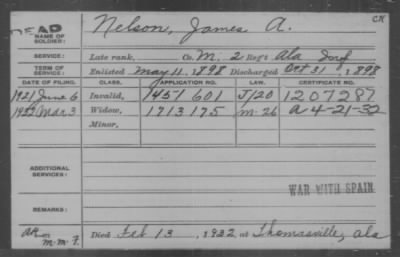 DEAD Nelson, James A. CK
NAME OF SOLDIER:
SERVICE: Late rank, Co. M. 2 Reg't Ala Inf
TERM OF SERVICE: Enlisted May 11, 1898 Discharged Oct 31, 1898
DATE OF FILING. CLASS. APPLICATION NO. LAW. CERTIFICATE NO.
1921 June 6 Invalid, 1451 601 J/20 1207287
1932 Mar 3 Widow, 1713175 M-26 A 4-21-32
Minor,
ADDITIONAL SERVICES:
WAR WITH SPAIN
REMARKS:
M.M.F. Died Feb 13, 1932 at Thomasville, Ala